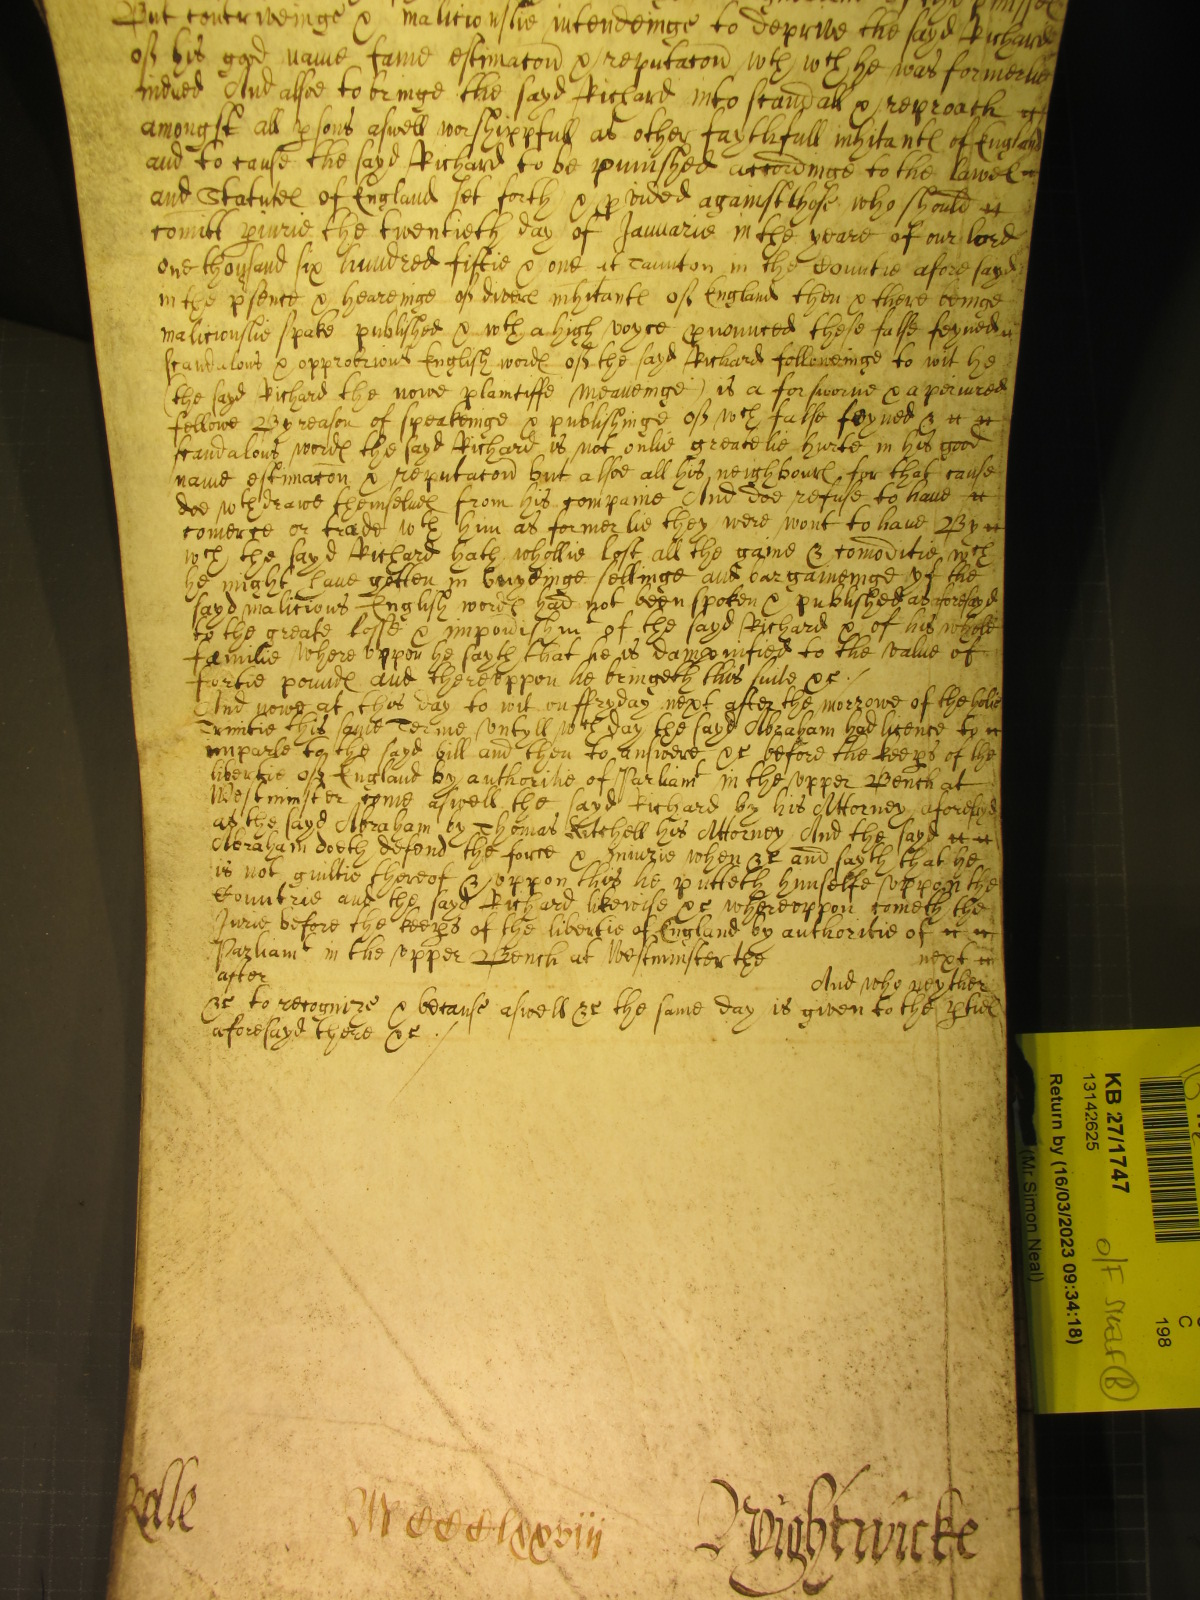 But contriveinge & maliciouslie intendeinge to deprive the sayd Richard
of his good name fame estimacon & reputacon wth wch he was formerlie
indued And alsoe to bringe the sayd Richard into scandall & reproach
amongst all psons aswell worshippfull as other faythfull inhitants of England
and to cause the sayd Richard to be punished accordinge to the lawes
and Statutes of England set forth & pvided against those who should
comitt piurie the twentieth day of Januarie in the yeare of our lord
one thousand six hundred fiftie & one at Taunton in the Countie aforesayd
in the psence & heareinge of divers inhitants of England then & there beinge
maliciouslie spake published & wth a high voyce pnounced these false feyned
scandalous & opprobrious English words of the sayd Richard followeinge to wit he
(the sayd Richard the nowe plaintiffe meaneinge) is a forsworne & a periured
fellowe By reason of speakeinge & publishinge of wch false feyned &
scandalous words the sayd Richard is not onlie greatelie hurte in his good
name estimacon & reputacon but alsoe all his neighbours for that cause
doe wthdrawe themselves from his companie And doe refuse to have
comerce or trade wth him as formerlie they were wont to have By
wch the sayd Richard hath whollie lost all the gaine & comoditie wch
he might have gotten in buyeinge sellinge and bargaineinge yf the
sayd malicious English words had not been spoken & published as aforesayd
to the greate losse & impovishmt of the sayd Richard & of his whole
familie where uppon he sayth that he is dampnified to the value of
fortie pounds and thereuppon he bringeth this suite &c
And nowe at this day to wit on ffryday next after the morrowe of the holie
Trinitie this same Terme Untyll wch day the sayd Abraham had licence to
imparle to the sayd bill and then to answere &c before the keeps of the
libertie of England by authoritie of Parliamt in the upper Bench at
Westminster come aswell the sayd Richard by his Attorney aforesayd
as the sayd Abraham by Thomas Kitchell his Attorney And the sayd
Abraham doeth defend the force & iniurie when &c and sayth that he
is not guiltie thereof & uppon this he putteth himselfe uppon the
Countrie and the sayd Richard likewise &c whereuppon cometh the
Jurie before the keeps of the libertie of England by authoritie of
Parliamt in the upper Bench at Westminster the next
after And who neyther
&c to recognize & because aswell &c the same day is given to the pties
aforesayd there &c
Rolle MCCCClxxviii Wightwicke
KB 27/1747
13142625
Return by (16/03/2023 09:34:18)
(Mr Simon Neal)
C
198